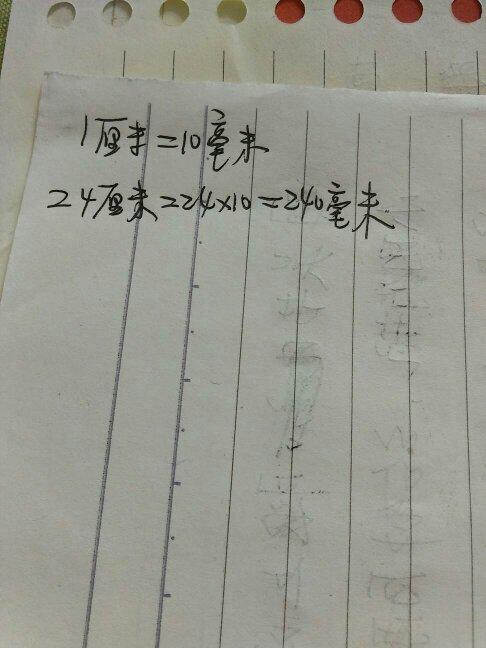 1厘米=10毫米
24厘米=24×10=240毫米